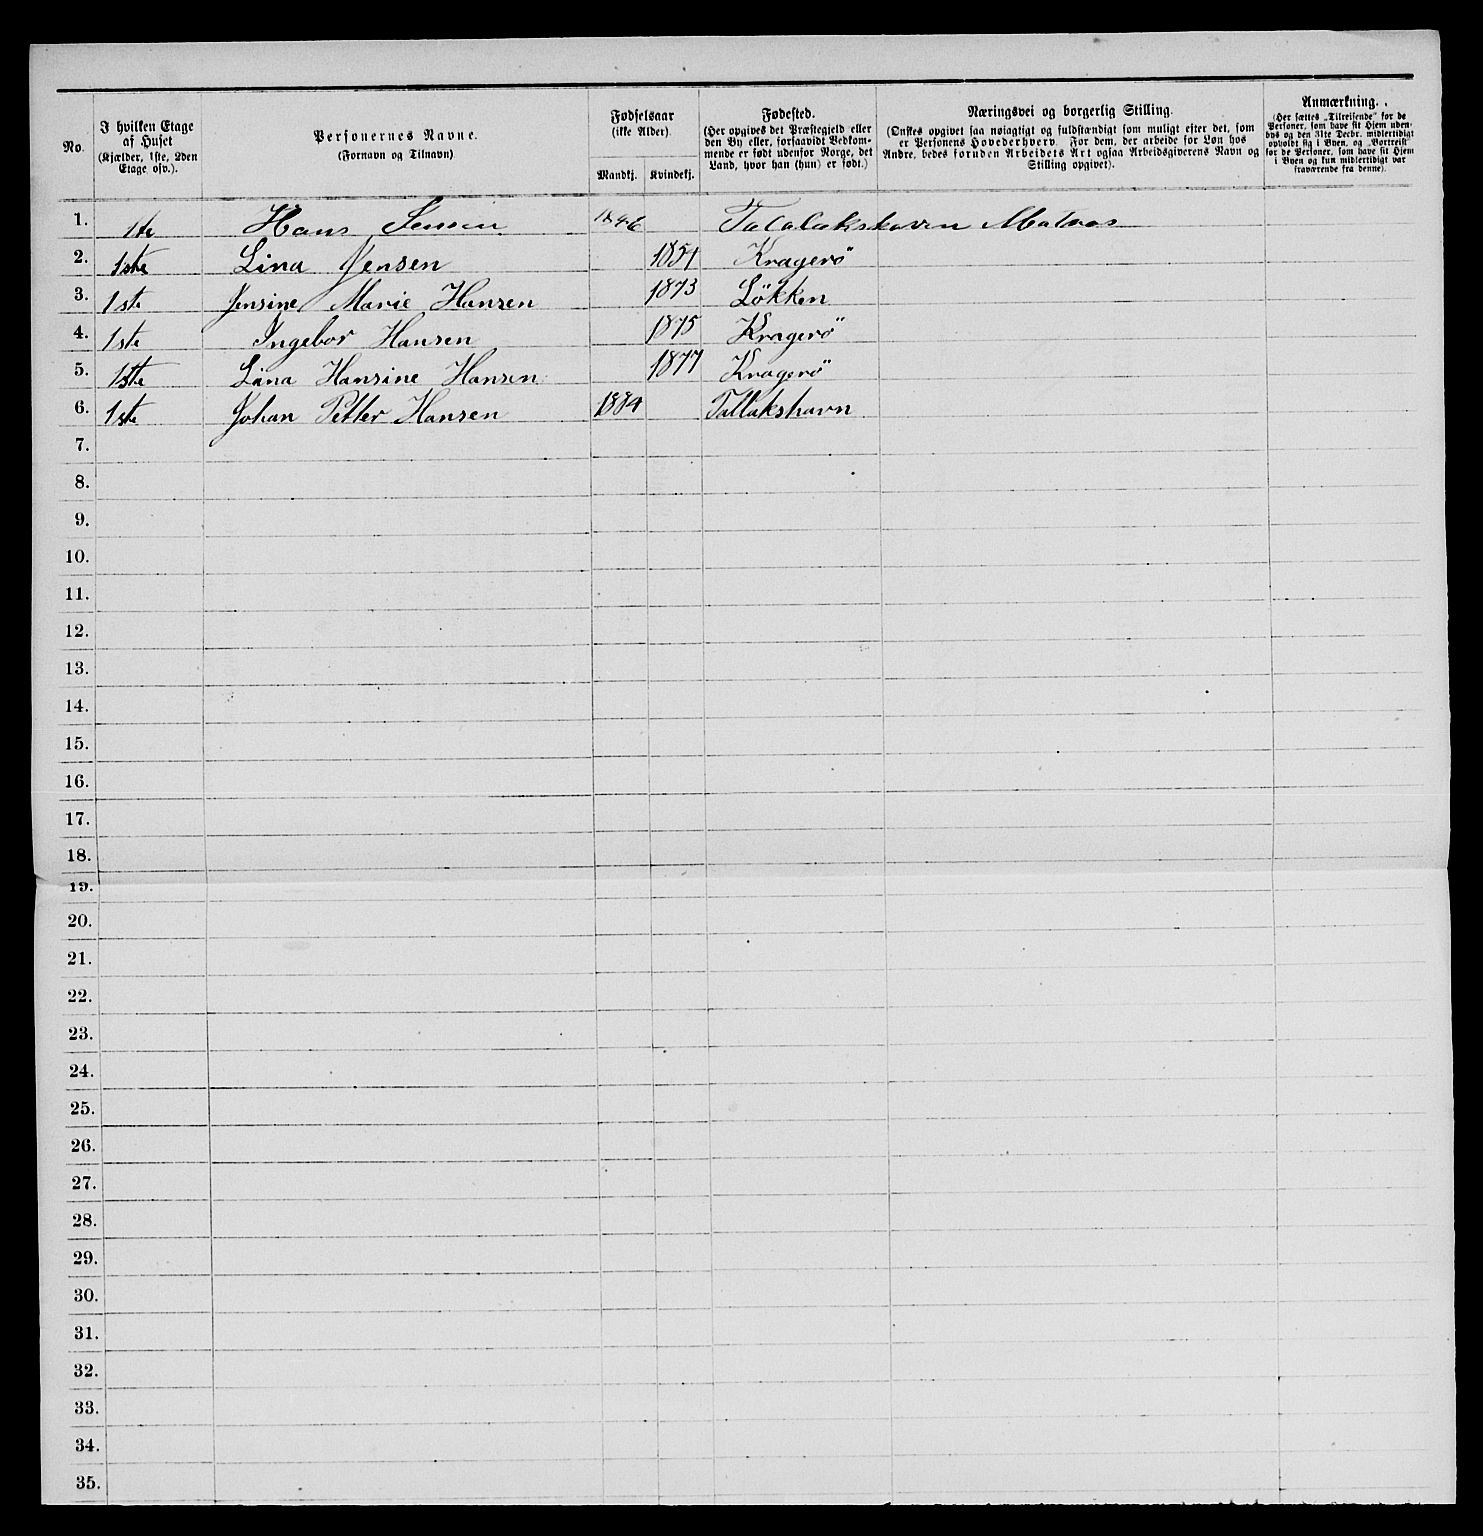 No.
I hvilken Etage af Huset (Kjælder, 1ste, 2den Etage osv.).
Personernes Navne. (Fornavn og Tilnavn)
Fødselsaar (ikke Alder).
Mandkj. Kvindekj.
Fødested. (Her opgives det Præstegjeld eller den By eller, forsaavidt Vedkommende er født udenfor Norge, det Land, hvor han (hun) er født.)
Næringsvei og borgerlig Stilling. (Ønskes opgivet saa nøiagtigt og fuldstændigt som muligt efter det, som er Personens Hovederhverv. For dem, der arbeide for Løn hos Andre, bedes foruden Arbeidets Art ogsaa Arbeidsgiverens Navn og Stilling opgivet).
Anmærkning. (Her sættes „Tilreisende" for de Personer, som have sit Hjem udenbys og den 31te Decbr. midlertidigt opholdt sig i Byen, og „Bortreist" for de Personer, som have sit Hjem i Byen og kun midlertidigt var fraværende fra denne).
1. 1ste Hans Jensen 1846 Matros
2. 1ste Lina Jensen 1851 Kragerö
3. 1ste Jensine Marie Hansen 1873 Lökken
4. 1ste Ingebor Hansen 1875 Kragerö
5. 1ste Lina Hansine Hansen 1877 Kragerö
6. 1ste Johan Petter Hansen 1884 Tallakshavn
7.
8.
9.
10.
11.
12.
13.
14.
15.
16.
17.
18.
19.
20.
21.
22.
23.
24.
25.
26.
27.
28.
29.
30.
31.
32.
33.
34.
35.